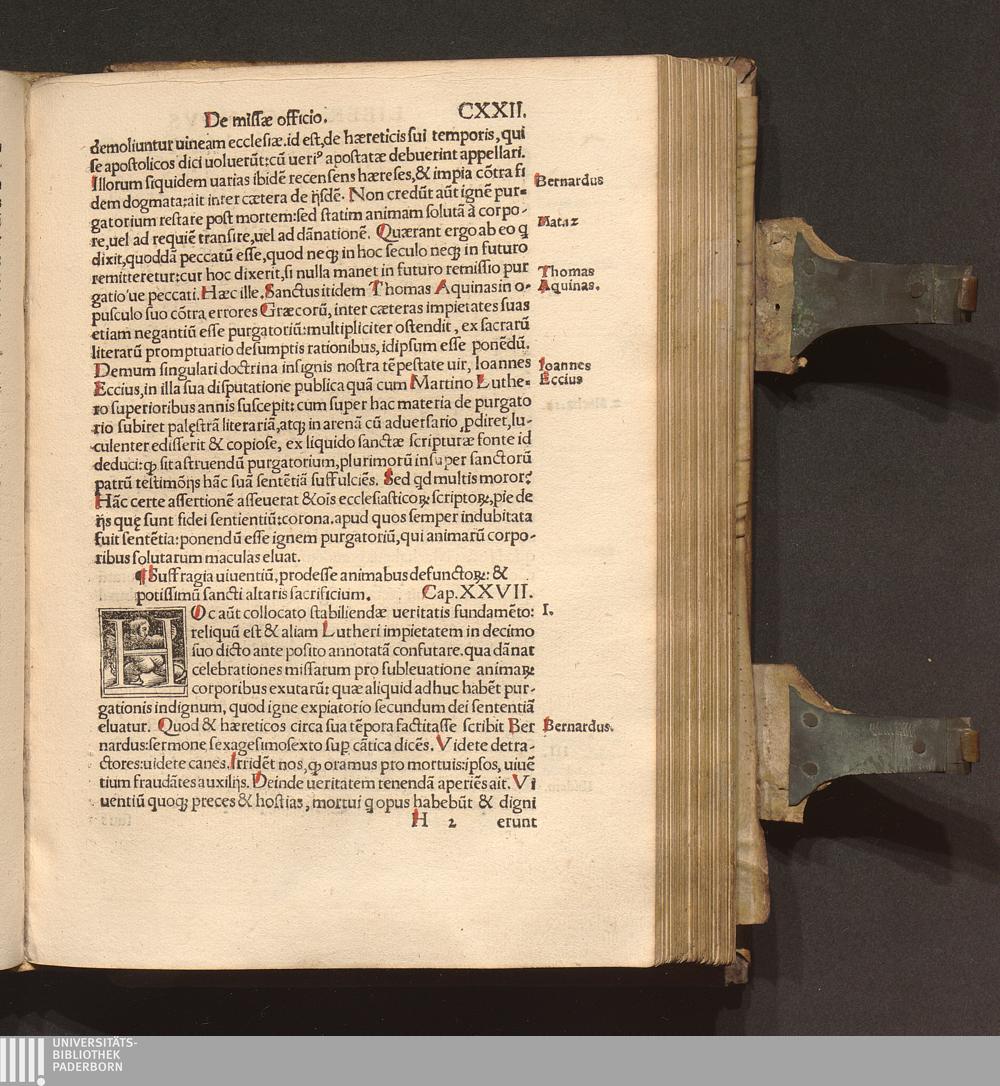 De missæ officio. CXXII.
demoliuntur uineam ecclesiæ. id est, de hæreticis sui temporis, qui
se apostolicos dici uoluerūt: cū ueriꝰ apostatæ debuerint appellari.
Illorum siquidem uarias ibidē recensens hæreses, & impia cōtra fi
dem dogmata: ait inter cætera de ijsdē. Non credūt aūt ignē pur-
gatorium restare post mortem: sed statim animam solutā à corpo-
re, uel ad requiē transire, uel ad dānationē. Quærant ergo ab eo q
dixit, quoddā peccatū esse, quod neqꝫ in hoc seculo neqꝫ in futuro
remitteretur: cur hoc dixerit, si nulla manet in futuro remissio pur
gatio'ue peccati. Hæc ille. Sanctus itidem Thomas Aquinas in o-
pusculo suo cōtra errores Græcorū, inter cæteras impietates suas
etiam negantiū esse purgatoriū: multipliciter ostendit, ex sacrarū
literarū promptuario desumptis rationibus, idipsum esse ponēdū.
Demum singulari doctrina insignis nostra tēpestate uir, Ioannes
Eccius, in illa sua disputatione publica quā cum Martino Luthe-
ro superioribus annis suscepit: cum super hac materia de purgato
rio subiret palęstrā literariā, atqꝫ in arenā cū aduersario ꝓdiret, lu-
culenter edisserit & copiose, ex liquido sanctæ scripturæ fonte id
deduci: ꝙ sit astruendū purgatorium, plurimorū insuper sanctorū
patrū testimonijs hāc suā sentētiā suffulciēs. Sed qd multis moror?
Hāc certe assertionē asseuerat & oīs ecclesiasticoꝝ scriptoꝝ, pie de
ijs quę sunt fidei sentientiū: corona. apud quos semper indubitata
fuit sentētia: ponendū esse ignem purgatoriū, qui animarū corpo-
ribus solutarum maculas eluat.
¶ Suffragia uiuentiū, prodesse animabus defunctoꝝ: &
potissimū sancti altaris sacrificium. Cap. XXVII.
HOc aūt collocato stabiliendæ ueritatis fundamēto:
reliquū est & aliam Lutheri impietatem in decimo
suo dicto ante posito annotatā confutare. qua dānat
celebrationes missarum pro subleuatione animaꝝ
corporibus exutarū: quæ aliquid adhuc habēt pur-
gationis indignum, quod igne expiatorio secundum dei sententiā
eluatur. Quod & hæreticos circa sua tēpora factitasse scribit Ber
nardus: sermone sexagesimosexto sup cātica dicēs. Videte detra-
ctores: uidete canes. Irridēt nos, ꝙ oramus pro mortuis ipsos, uiuē
tium fraudātes auxilijs. Deinde ueritatem tenendā aperiēs ait. Vi
uentiū quoqꝫ preces & hostias, mortui q opus habebūt & digni
H 2 erunt
Bernardus
Mat. 12
Thomas
Aquinas.
Ioannes
Eccius
I.
Bernardus.
UNIVERSITÄTS-
BIBLIOTHEK
PADERBORN